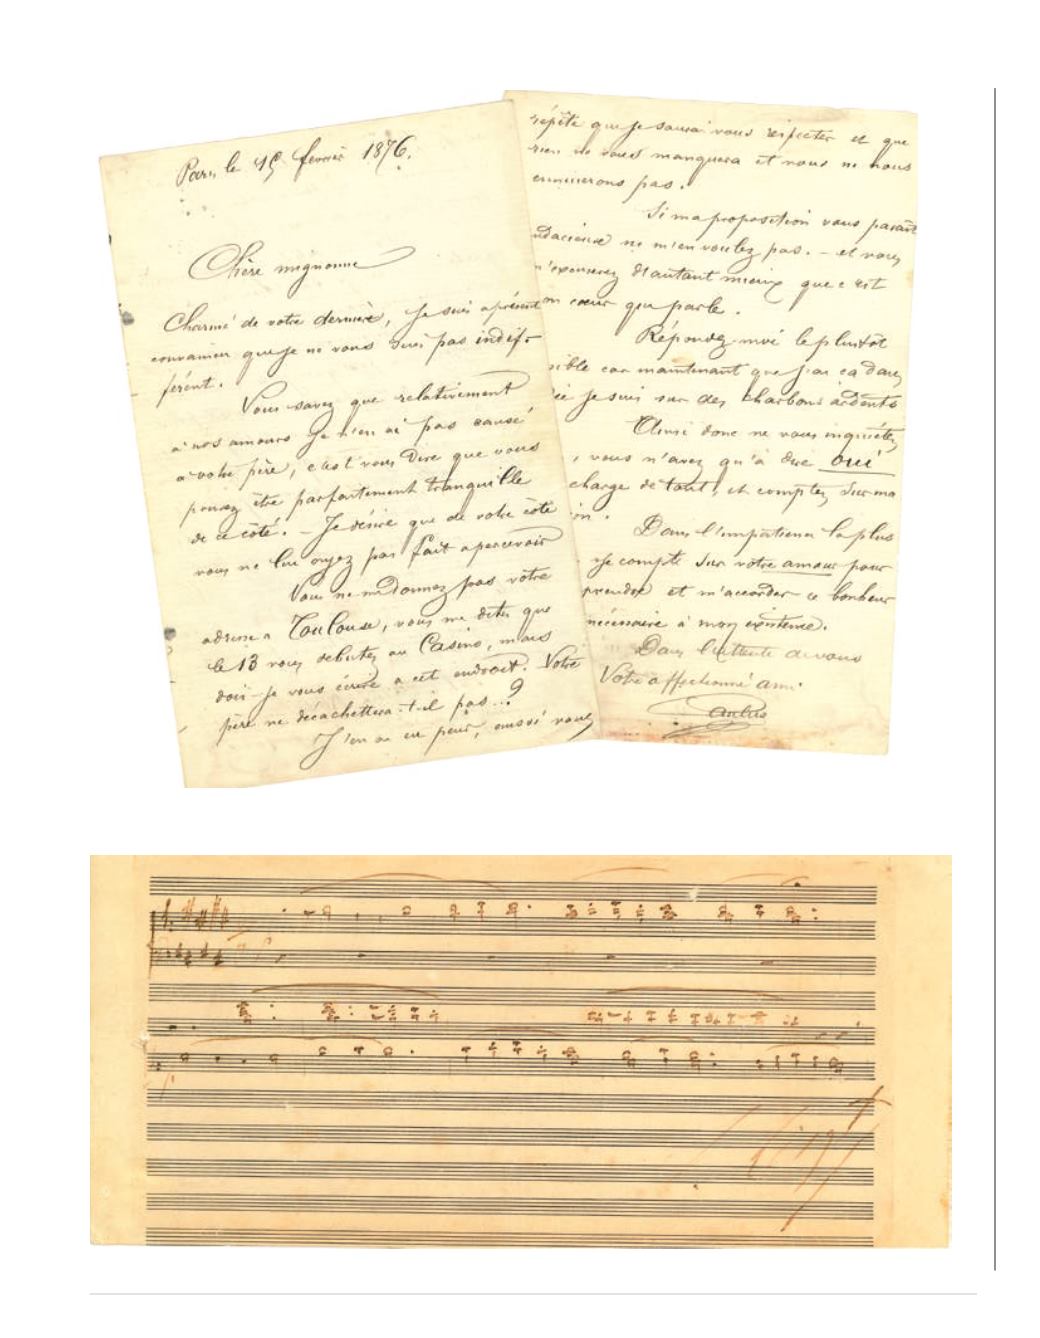 Paris le 15 février 1876.
Chère mignonne
Charmé de votre dernière, je suis à présent
convaincu que je ne vous suis pas indif-
férent.
Vous savez que relativement
à nos amours je n'en ai pas causé
à votre père, c'est vous dire que vous
pouvez être parfaitement tranquille
de ce côté. – Je désire que de votre côté
vous ne lui ayez pas fait apercevoir
Vous ne me donnez pas votre
adresse à Toulouse, vous me dites que
le 13 vous débutez au Casino, mais
dois-je vous écrire a cet endroit. Votre
père ne décachettera-t-il pas...?
J'en ai eu peur, aussi vous
répète que je saurai vous respecter et que
rien ne vous manquera et nous ne nous
ennuierons pas.
Si ma proposition vous parait
udacieuse ne m'en voulez pas. – et vous
m'excuserez d'autant mieux que c'est
on cœur qui parle.
Répondez-moi le plutôt
sible car maintenant que j'ai ça dans
je suis sur des charbons ardents
Ainsi donc ne vous inquiétez
, vous n'avez qu'à dire oui
charge de tout, et comptez sur ma
ion.
Dans l'impatience la plus
je compte sur votre amour pour
prendre et m'accorder ce bonheur
nécessaire à mon existence.
Dans l'attente de vous
Votre affectionné ami
Paulus